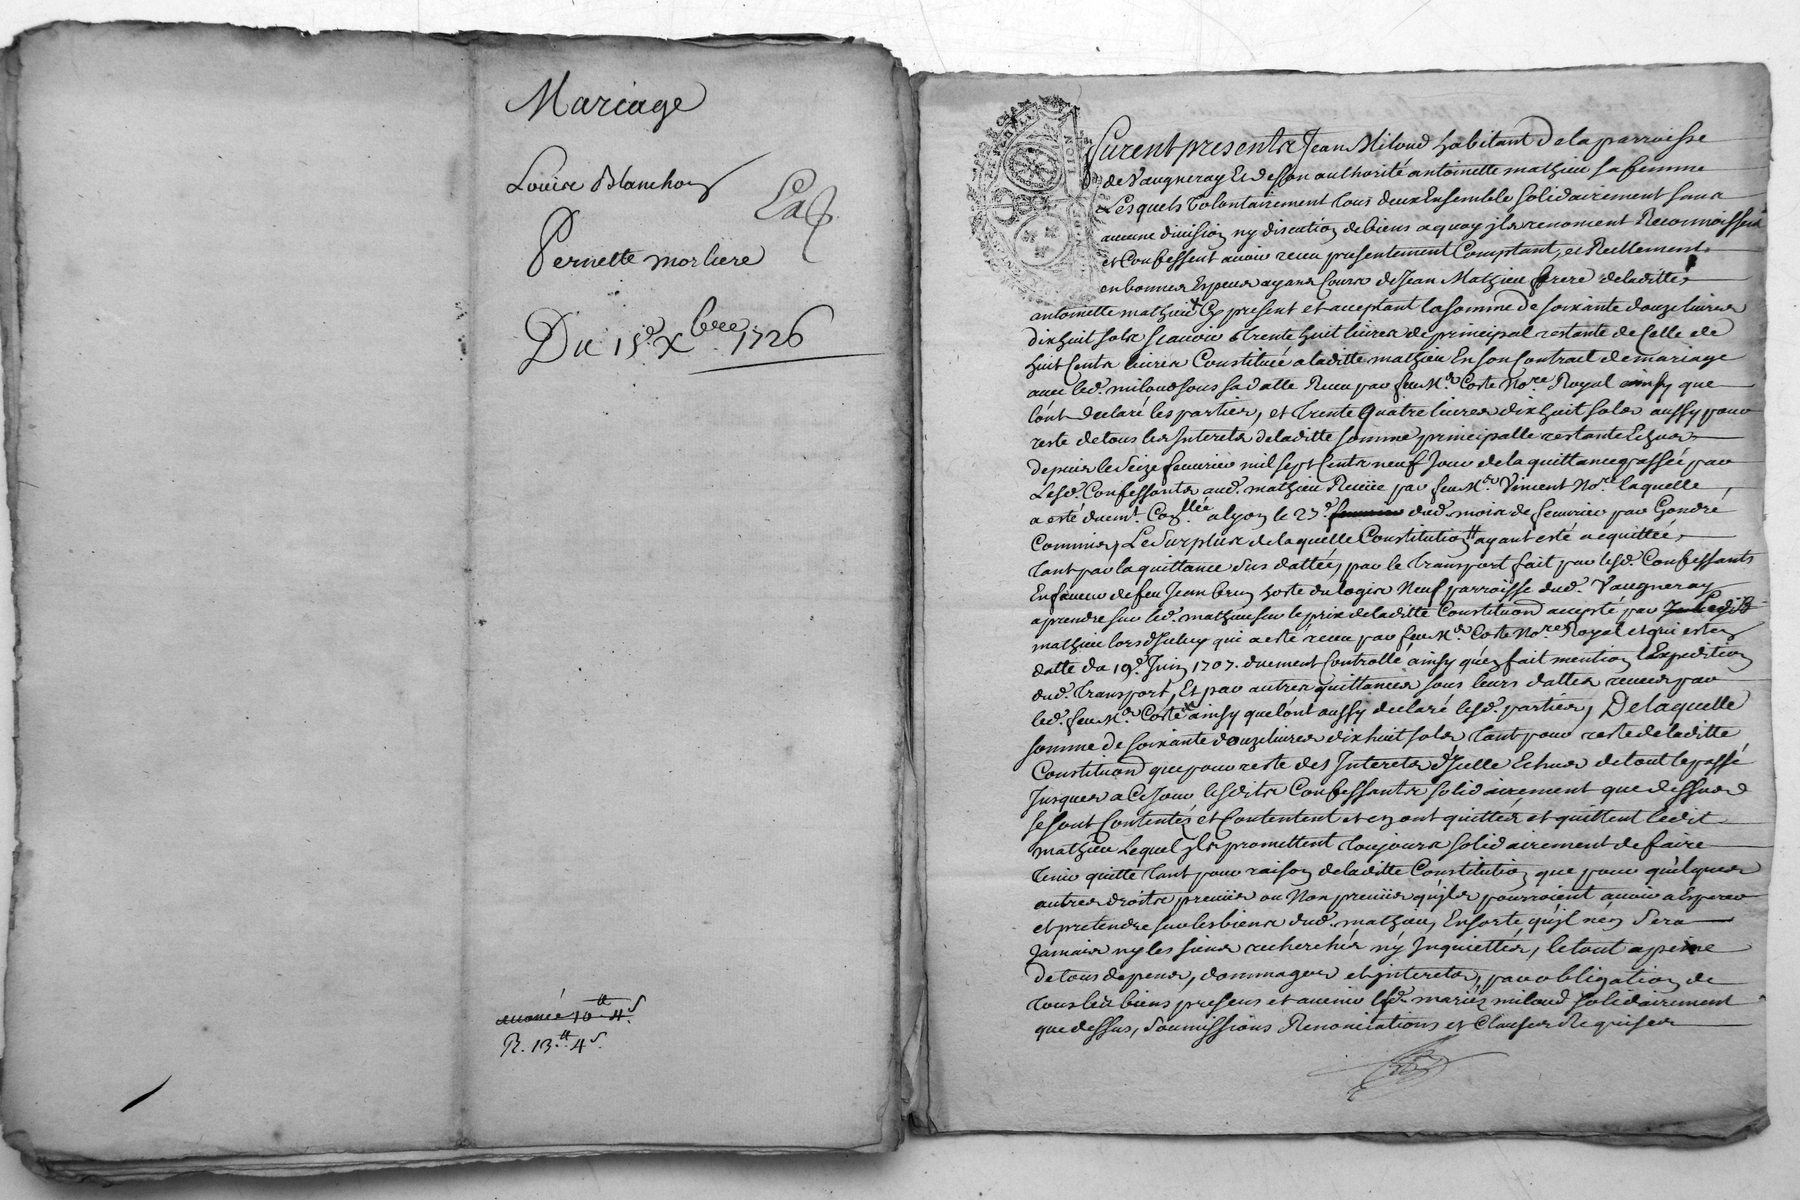 Mariage
Louise Blanchon
Pernette morliere
Du 15e Xbre 1726
avancé 10# 4s
R. 13# 4s
Furent presents Jean Miloud habitant de la parroisse
de Vaugneray Et de son authorité antoinette mathieu sa femme
Lesquels volontairement tous deux Ensemble solidairement sans
aucune division ny discution de biens a quoy ils renoncent Reconnoissent
et Confessent avoir receu presentement Comptant, et Reellement
en bonnes Especes ayans Cours de Jean Mathieu frere de laditte
antoinette mathieu Cy present et acceptant la somme de soixante douze livres
dix huit sols scavoir trente huit livres de principal restante de Celle de
huit Cents livres Constituée a laditte mathieu En son Contract de mariage
avec led. miloud sous sa datte Receu par feu Me. Coste Nore. Royal ainsy que
l'ont declaré les parties, et trente quatre livres dix huit sols aussy pour
reste de tous les Interets de laditte somme principalle restante Echus
depuis le seize fevrier mil sept Cents neuf Jour de la quittance passée par
Lesd. Confessants aud. mathieu Receüe par feu Me. Vincent Nore. laquelle
a esté duemt. Conllée a lyon le 23e. dud. mois de fevrier par Gondré
Commis, Le surplus de laquelle Constitution ayant esté acquittée
tant par la quittance sus dattée, par le transport fait par lesd. Confessants
En faveur de feu Jean hoste du logis Neuf parroisse dud. Vaugneray
a prendre sur led. mathieu sur le prix de laditte Constituon accepté par
mathieu lors d'Iceluy qui a esté receu par feu Me. Coste Nore. Royal et qui est en
datte du 19e. Juin 1707. duement Controllé ainsy qu'en fait mention l'Expedition
dud. transport, Et par autres quittances sous leurs dattes receues par
led. feu Me. Coste ainsy que l'ont aussy declaré lesd. parties, De laquelle
somme de soixante douze livres dix huit sols tant pour reste de laditte
Constituon que pour reste des Interets d'Icelle Echus de tout le passé
Jusques a Ce Jour lesdits Confessants solidairement que dessus
se sont Contentés et Contentent et en ont quitté et quittent ledit
mathieu Lequel ils promettent toujours solidairement de faire
tenir quitte tant pour raison de laditte Constitution que pour quelques
autres droits preveus ou Non preveus qu'ils pourroient avoir a Esperer
et pretendre sur les biens dud. mathieu, En sorte qu'il n'en sera
Jamais ny les siens recherchés ny Inquiettés, le tout a peine
de tous depens, dommages et interets, par obligation de
tous les biens presens et avenir desd. mariés miloud solidairement
que dessus, soumissions Renonciations et Clauses Requises